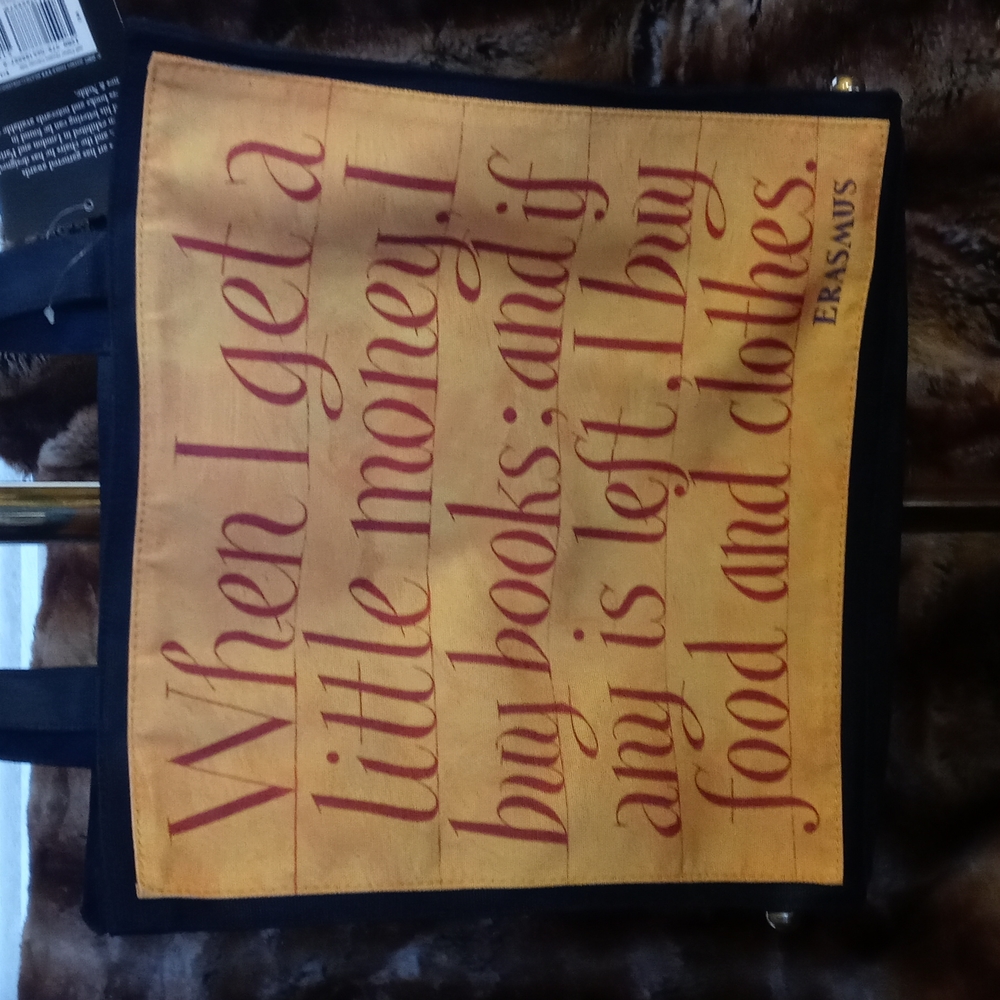 When I get a
little money, I
buy books; and if
any is left, I buy
food and clothes.
ERASMUS